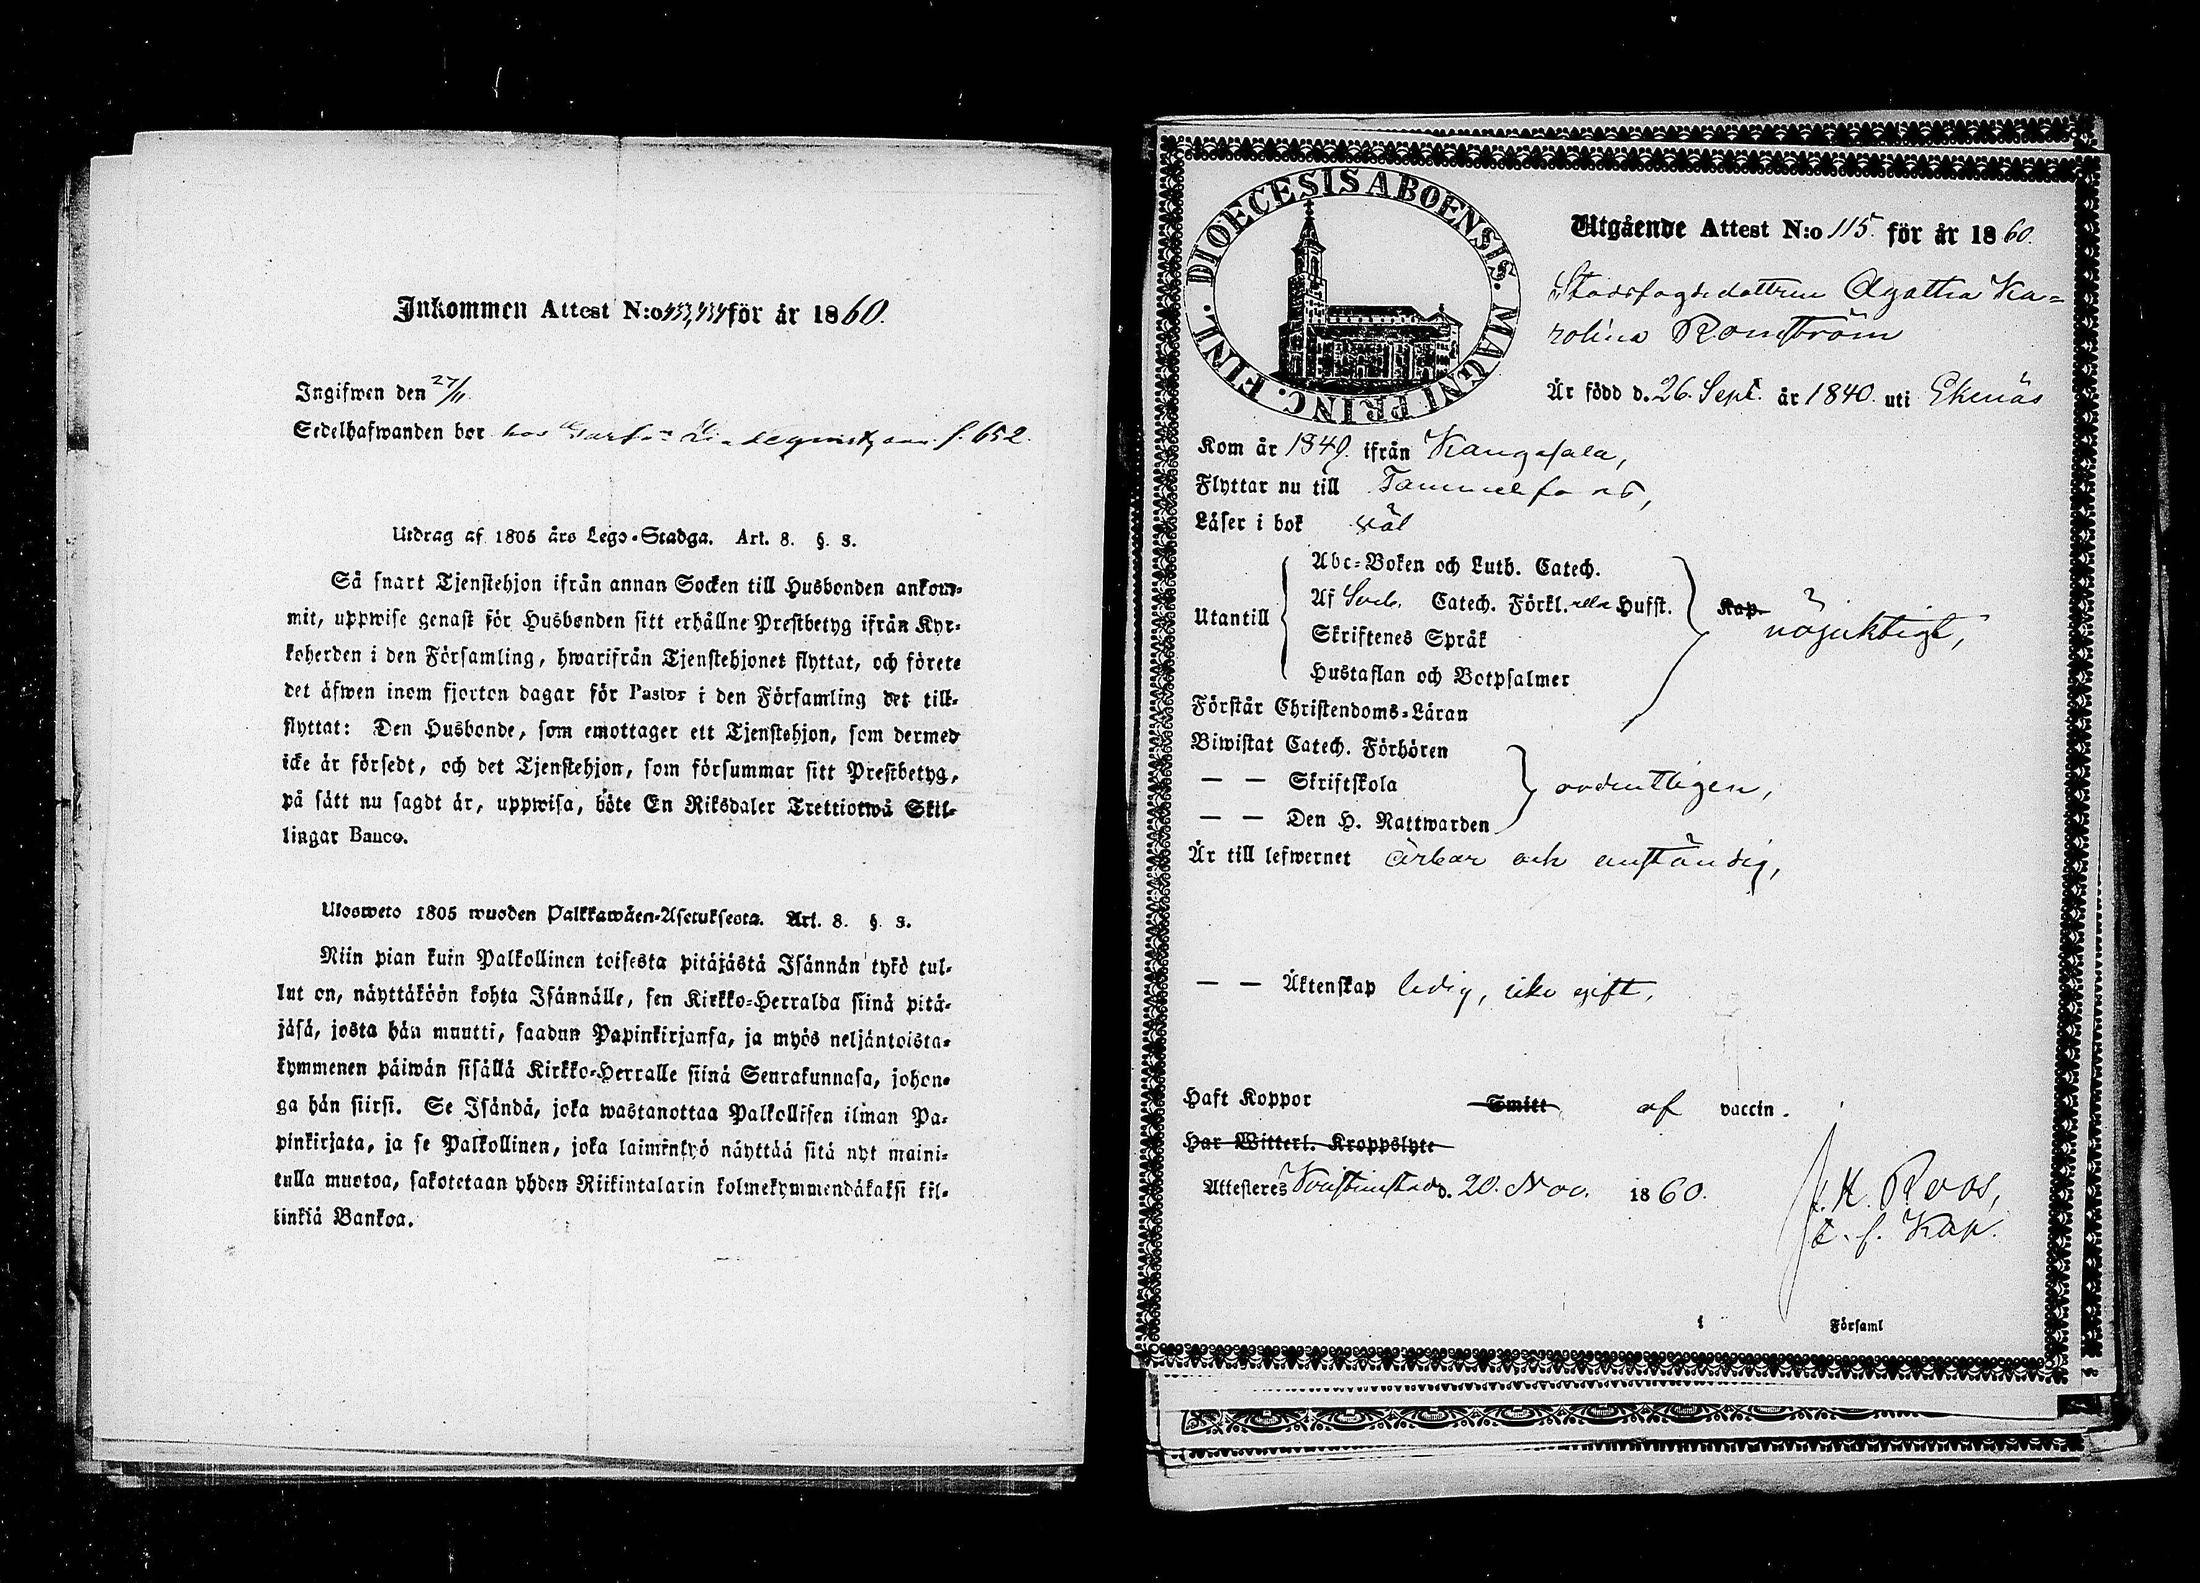 Inkommen Attest N:o 433,434 för år 1860.
Ingifwen den 27/11.
Sedelhafwanden bor hos Lindeqvist, f. 652.
Utdrag af 1805 års Lego-Stadga. Art. 8. §. 3.
Så snart Tjenstehjon ifrån annan Socken till Husbonden ankom-
mit, uppwise genast för Husbonden sitt erhållne Prestbetyg ifrån Kyr-
koherden i den Församling, hwarifrån Tjenstehjonet flyttat, och förete
det äfwen inom fjorton dagar för Pastor i den Församling det till-
flyttat: Den Husbonde, som emottager ett Tjenstehjon, som dermed
icke är försedt, och det Tjenstehjon, som försummar sitt Prestbetyg,
på sätt nu sagdt är, uppwisa, böte En Riksdaler Trettiotwå Skil-
lingar Banco.
Ulosweto 1805 wuoden Palkkawäen-Asetuksesta. Art. 8. §. 3.
Niin pian kuin Palkollinen toisesta pitäjästä Isännän tykö tul-
lut on, näyttäköön kohta Isännälle, sen Kirkko-Herralda siinä pitä-
jäsä, josta hän muutti, saadun Papinkirjansa, ja myös neljäntoista-
kymmenen päiwän sisällä Kirkko-Herralle siinä Seurakunnasa, johon-
ga hän siirsi. Se Isändä, joka wastanottaa Palkollisen ilman Pa-
pinkirjata, ja se Palkollinen, joka laiminlyö näyttää sitä nyt maini-
tulla muotoa, sakotetaan yhden Riikintalarin kolmekymmendäkaksi kil-
linkiä Bankoa.
DIOECESIS ABOENSIS. MAGNI PRINC. FINL.
Utgående Attest N:o 115. för år 1860.
Stadsfogdedottren Agatha Ka-
rolina Romström
Är född d. 26. Sept. år 1840. uti Ekenäs
Kom år 1849. ifrån Kangasala,
Flyttar nu till Tammerfors,
Läser i bok väl
Utantill
Abc-Boken och Luth. Catech.
Af Sveb. Catech. Förkl. Hufst.
Skriftenes Språk
Hustaflan och Botpsalmer
Kap. nöjaktigt,
Förstår Christendoms-Läran
Biwistat Catech. Förhören
— — Skriftskola
— — Den H. Nattwarden
ordentligen,
Är till lefwernet ärbar och anständig,
— — Äktenskap ledig, icke gift,
Haft Koppor Smitt af vaccin.
Har Witterl. Kroppslyte
Attesteres Kristinestad d. 20. Nov. 1860.
J. K. Roos,
t. f. Kap.
i Församl